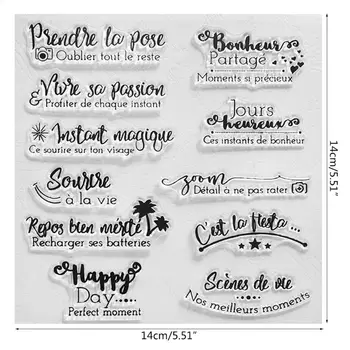 Prendre la pose
Oublier tout le reste
Vivre sa passion
& Profiter de chaque instant
Instant magique
Ce sourire sur ton visage
Sourire
à la vie
Repos bien mérité
Recharger ses batteries
Happy
Day....
Perfect moment
Bonheur
Partagé
Moments si précieux
Jours
heureux
Ces instants de bonheur
zoom
Détail à ne pas rater
C'est la fiesta...
Scènes de vie
Nos meilleurs moments
14cm/5.51"
14cm/5.51"